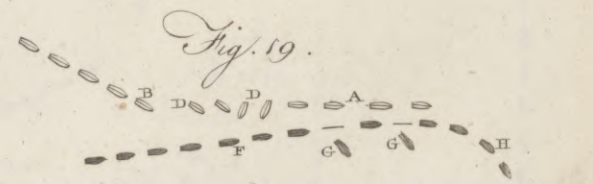 Fig. 19.
B D D A
F G G H